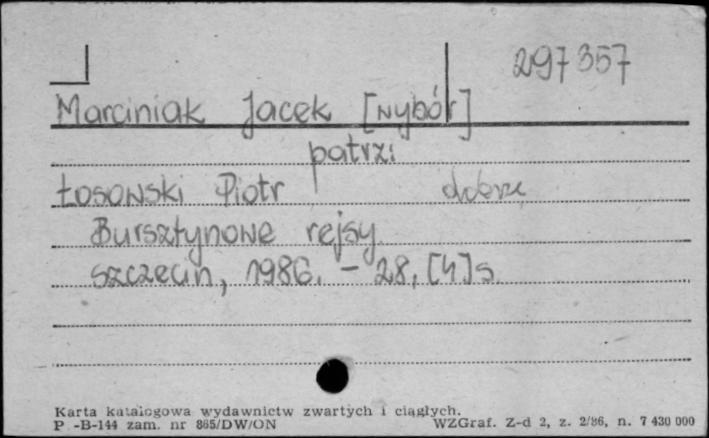 297357
Marciniak Jacek [wybór]
patrzi
Łosowski Piotr dobrze
Bursztynowe rejsy
Szczecin, 1986. – 28, [4] s.
Karta katalogowa wydawnictw zwartych i ciągłych.
P -B-144 zam. nr 865/DW/ON WZGraf. Z-d 2, z. 2/86, n. 7 430 000